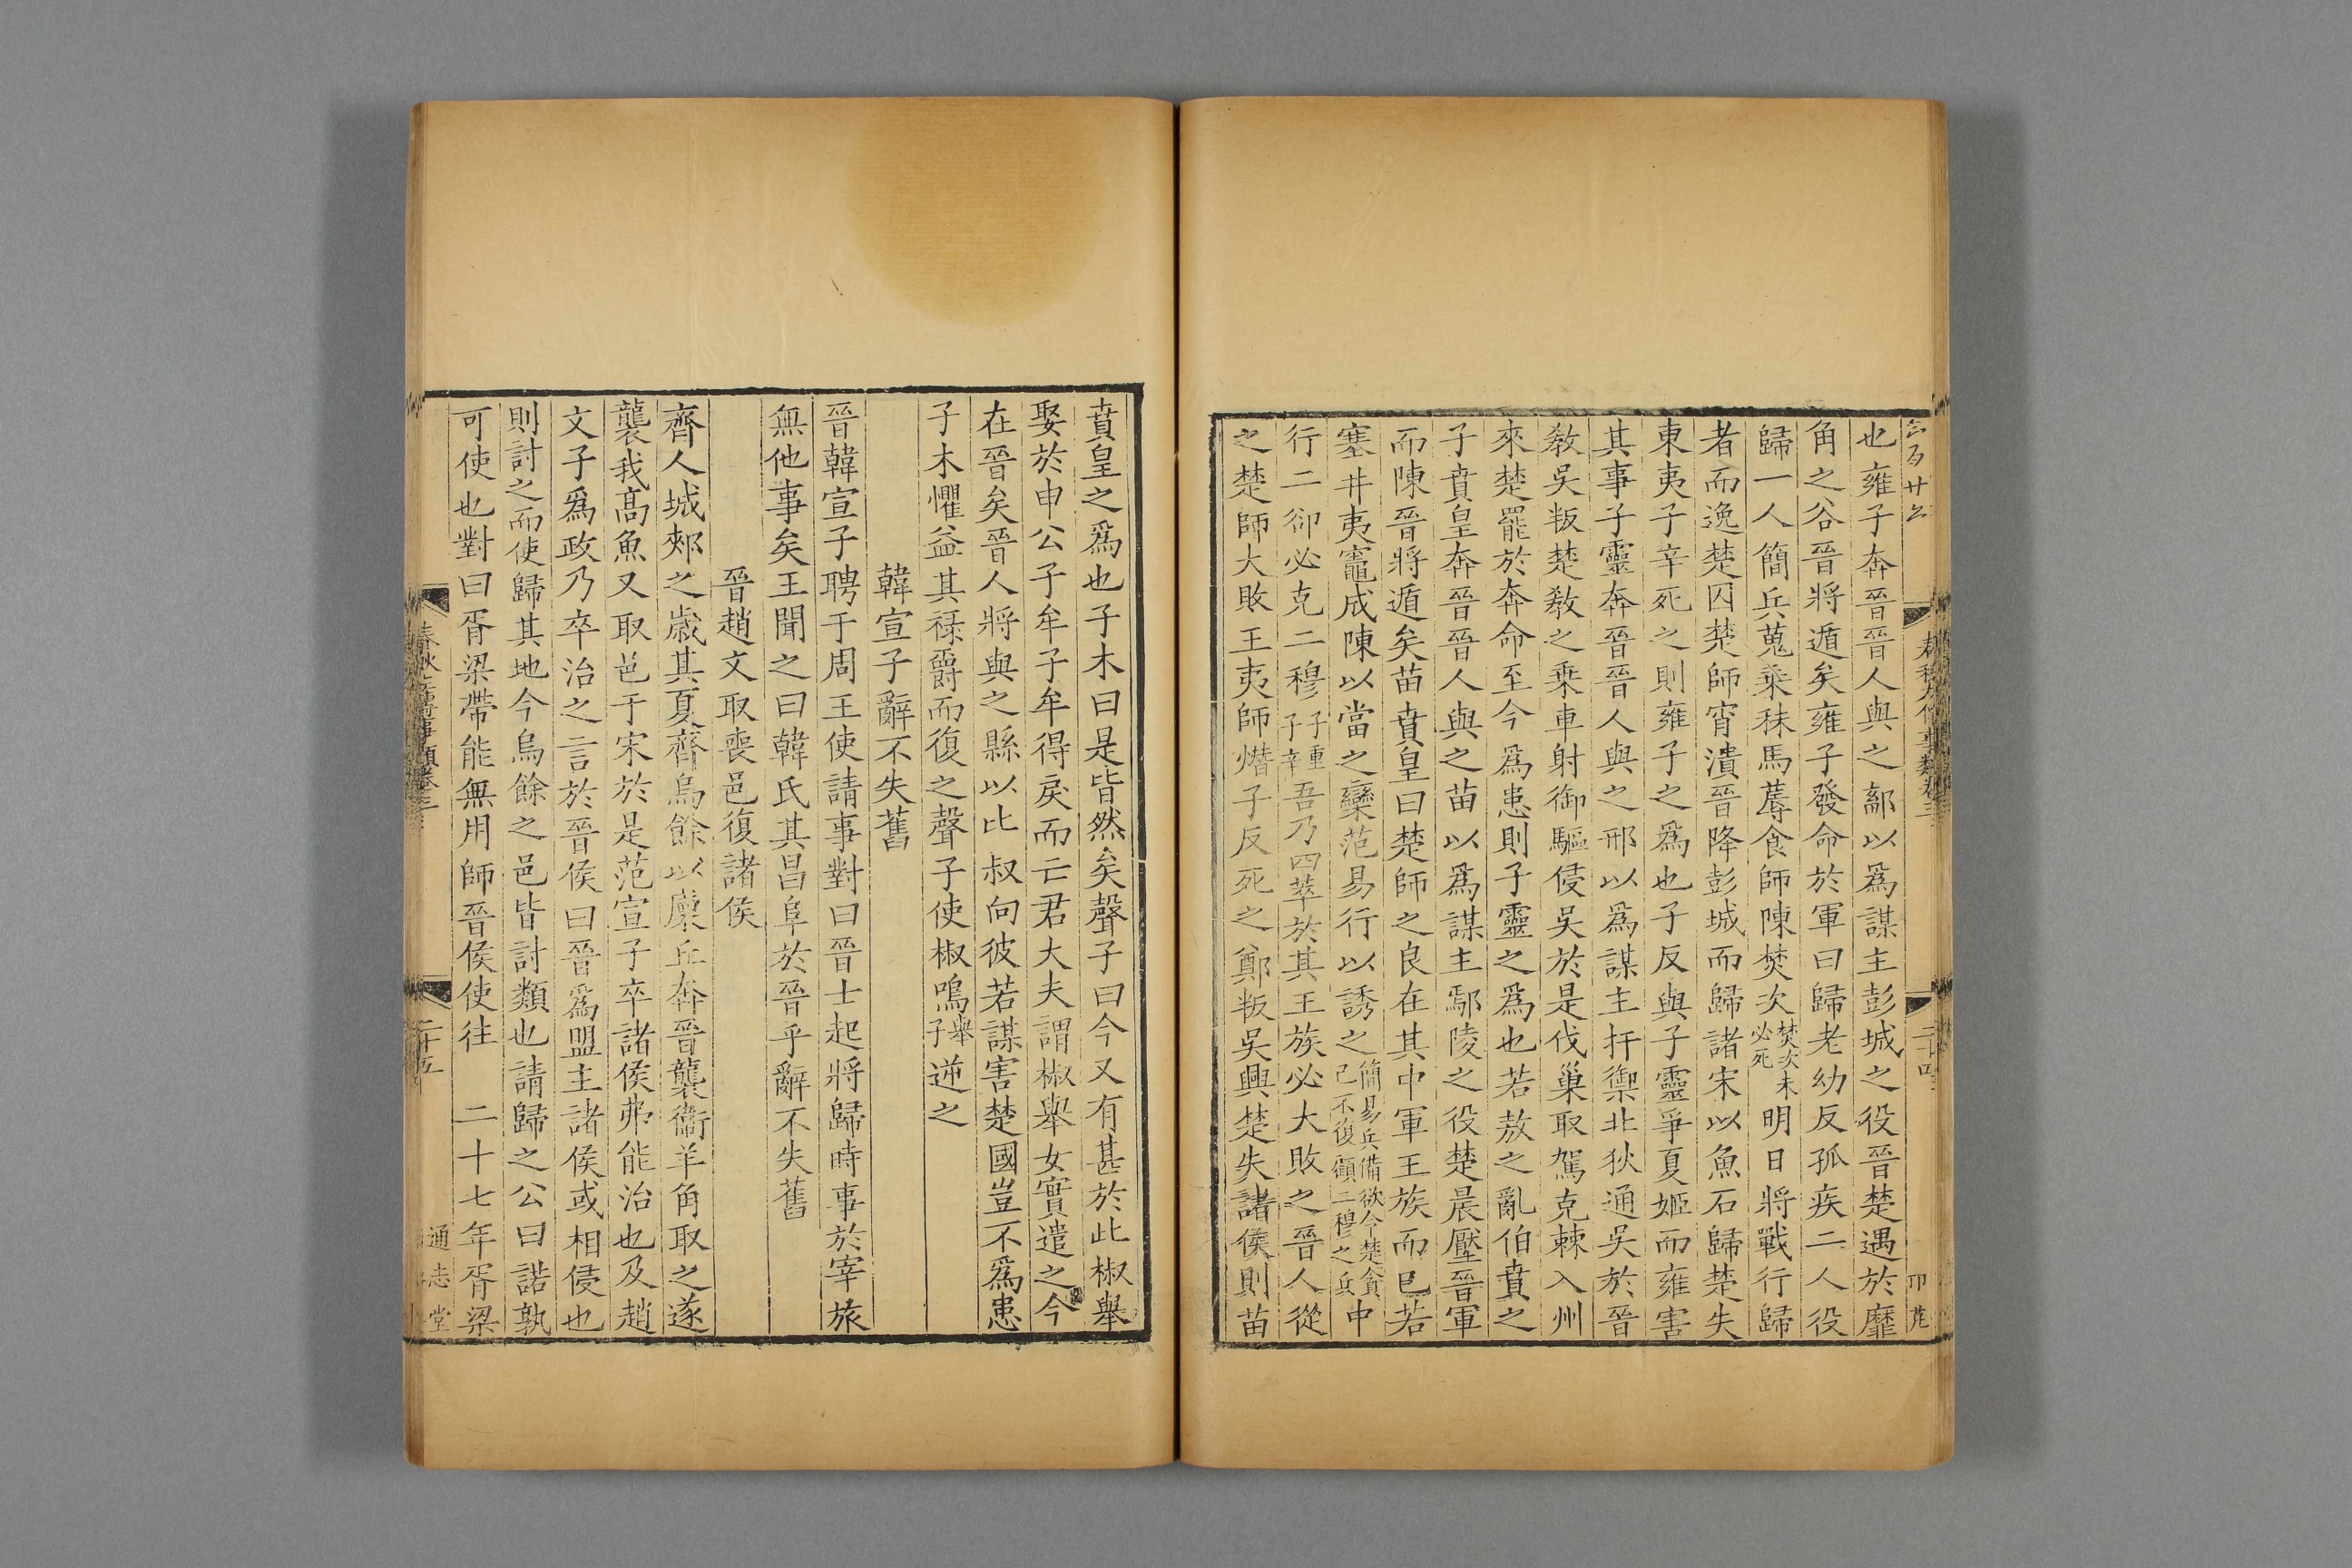 也雍子奔晉晉人與之鄐以爲謀主彭城之役晉楚遇於靡
角之谷晉將遁矣雍子發命於軍曰歸老幼反孤疾二人役
歸一人簡兵蒐乘秣馬蓐食師陳焚次焚次未必死明日將戰行歸
者而逸楚囚楚師宵潰晉降彭城而歸諸宋以魚石歸楚失
東夷子辛死之則雍子之爲也子反與子靈爭夏姬而雍害
其事子靈奔晉晉人與之邢以爲謀主扞禦北狄通吳於晉
敎吳叛楚敎之乘車射御驅侵吳於是伐巢取駕克棘入州
來楚罷於奔命至今爲患則子靈之爲也若敖之亂伯賁之
子賁皇奔晉晉人與之苗以爲謀主鄢陵之役楚晨壓晉軍
而陳晉將遁矣苗賁皇曰楚師之良在其中軍王族而已若
塞井夷竈成陳以當之欒范易行以誘之簡易兵備欲令楚貪己不復顧二穆之兵中
行二郤必克二穆子重子辛吾乃四萃於其王族必大敗之晉人從
之楚師大敗王夷師熸子反死之鄭叛吳興楚失諸侯則苗
賁皇之爲也子木曰是皆然矣聲子曰今又有甚於此椒舉
娶於申公子牟子牟得戾而亡君大夫謂椒舉女實遣之今
在晉矣晉人將與之縣以比叔向彼若謀害楚國豈不爲患
子木懼益其祿爵而復之聲子使椒鳴舉子逆之
韓宣子辭不失舊
晉韓宣子聘于周王使請事對曰晉士起將歸時事於宰旅
無他事矣王聞之曰韓氏其昌阜於晉乎辭不失舊
晉趙文取喪邑復諸侯
齊人城郟之歲其夏齊烏餘以廩丘奔晉襲衞羊角取之遂
襲我高魚又取邑于宋於是范宣子卒諸侯弗能治也及趙
文子爲政乃卒治之言於晉侯曰晉爲盟主諸侯或相侵也
則討之而使歸其地今烏餘之邑皆討類也請歸之公曰諾孰
可使也對曰胥梁帶能無用師晉侯使往 二十七年胥梁
二十五
通志堂